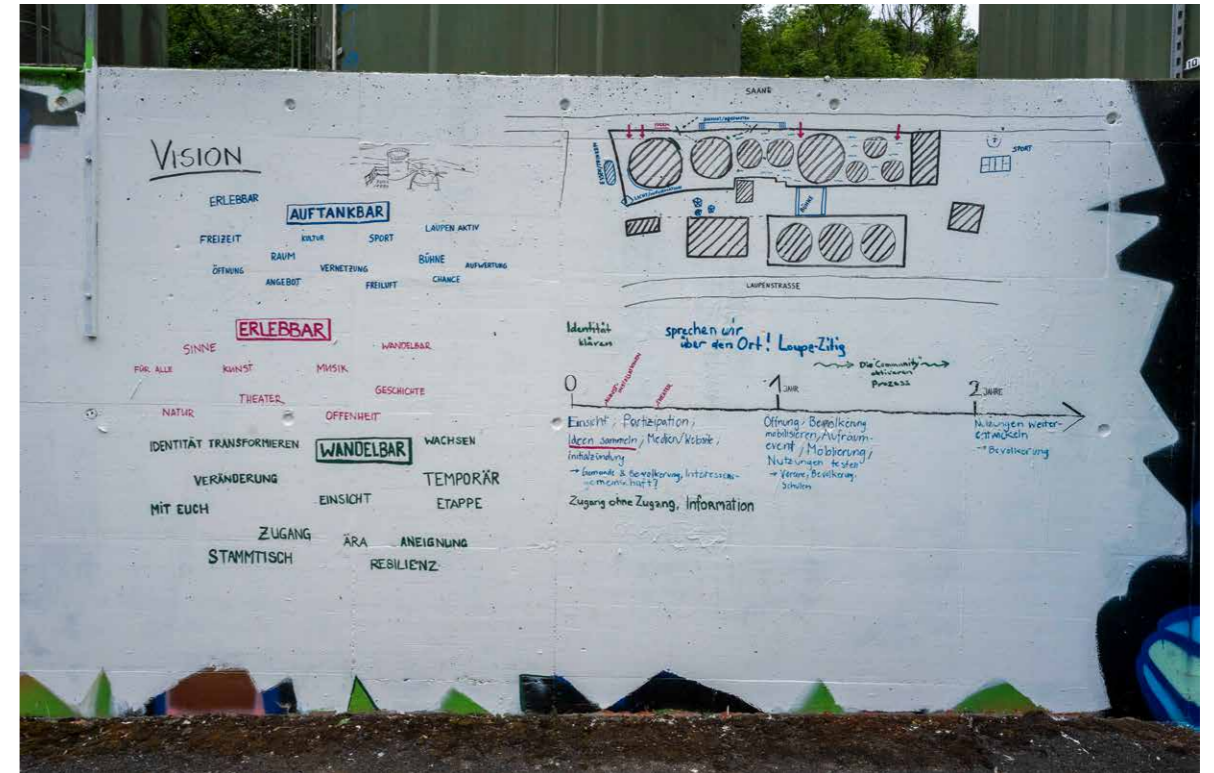 VISION
ERLEBBAR
AUFTANKBAR
FREIZEIT KULTUR SPORT LAUPEN AKTIV
RAUM BÜHNE
ÖFFNUNG VERNETZUNG AUFWERTUNG
ANGEBOT FREILUFT CHANCE
ERLEBBAR
SINNE WANDELBAR
FÜR ALLE KUNST MUSIK
THEATER GESCHICHTE
NATUR OFFENHEIT
IDENTITÄT TRANSFORMIEREN WANDELBAR WACHSEN
VERÄNDERUNG TEMPORÄR
MIT EUCH EINSICHT ETAPPE
ZUGANG ÄRA ANEIGNUNG
STAMMTISCH RESILIENZ
SAANE
SPORT
BÜHNE
LAUPENSTRASSE
Identität
klären
sprechen wir
über den Ort! Loupe-Zitig
Die Community
aktivieren
Prozess
0
THEATER
1 JAHR
2 JAHRE
Einsicht, Partizipation,
Ideen sammeln, Medien/Website,
Initialzündung
→ Gemeinde & Bevölkerung, Interessen-
gemeinschaft?
Zugang ohne Zugang, Information
Öffnung, Bevölkerung
mobilisieren, Aufraum-
event, Möblierung,
Nutzungen testen
→ Vereine, Bevölkerung,
Schulen
Nutzungen weiter-
entwickeln
→ Bevölkerung
10